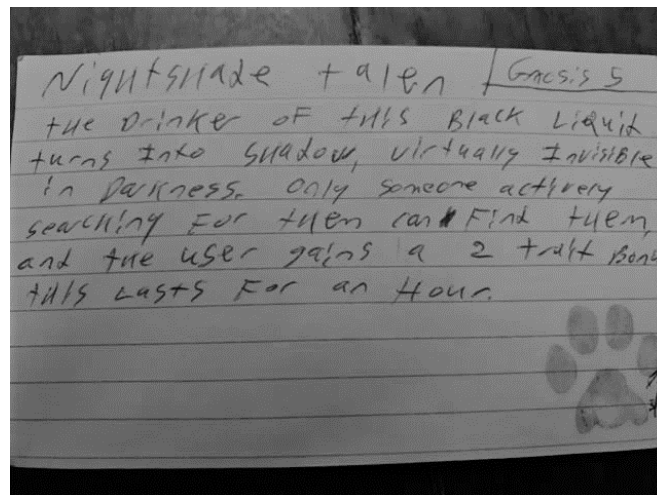 Nightshade talen
Gnosis 5
the Drinker of this Black Liquid
turns Into Shadow, virtually Invisible
in Darkness. Only someone actively
searching For them can Find them,
and the user gains a 2 trait Bonu
this Lasts For an Hour.